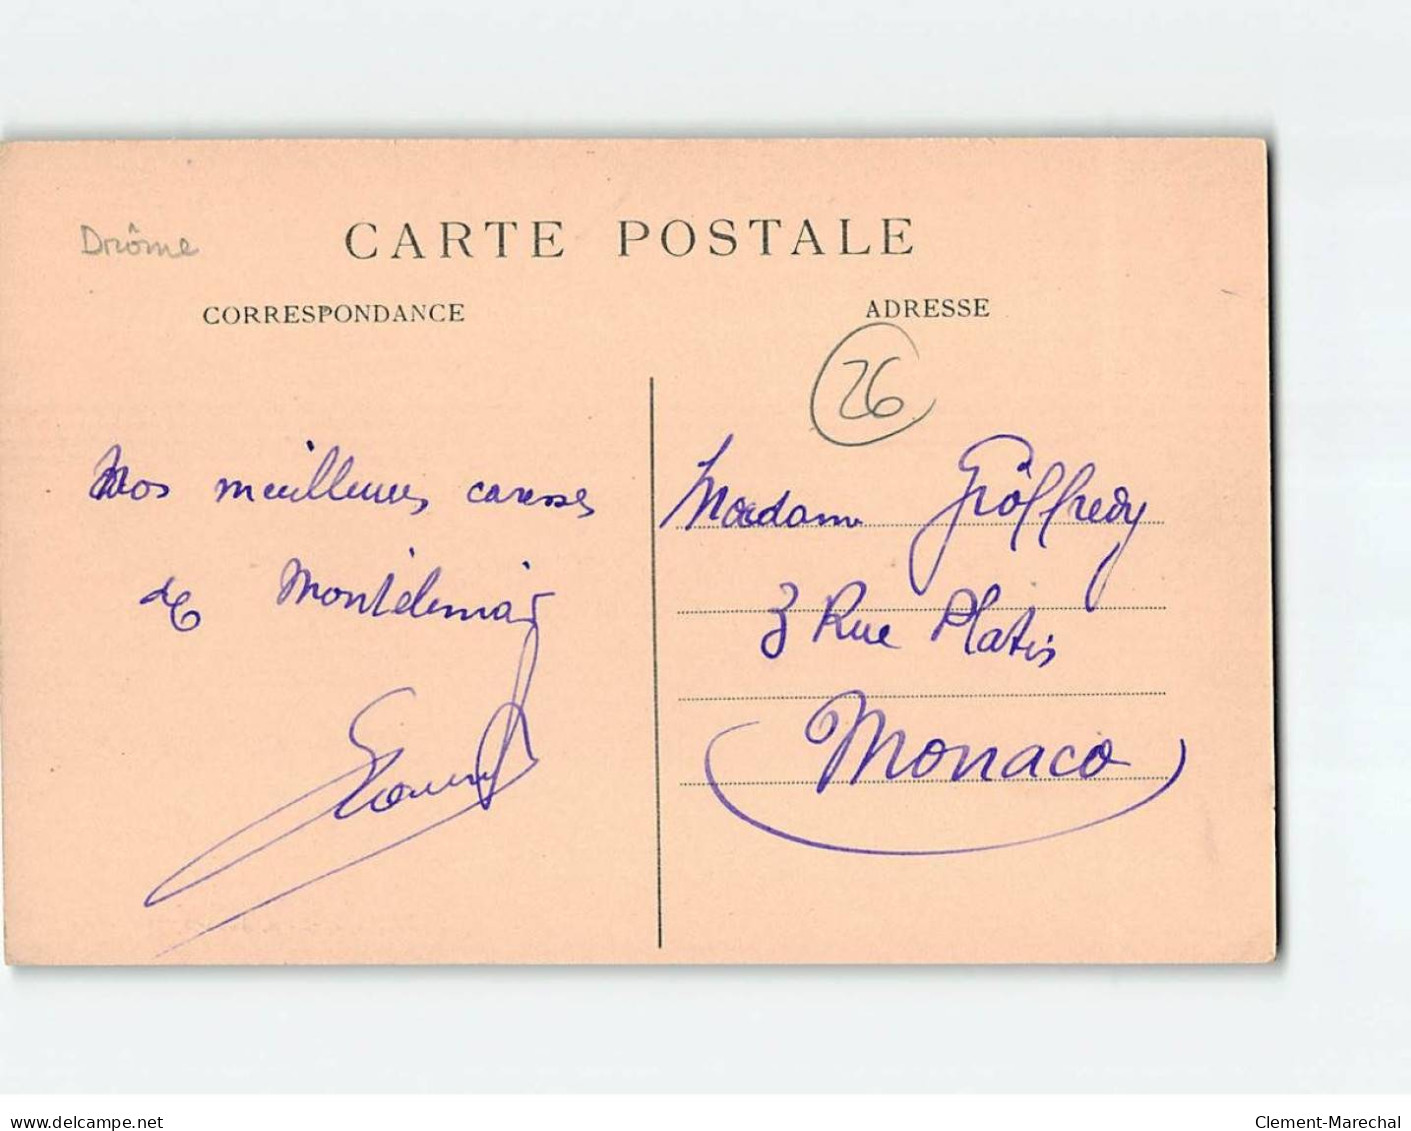 Drôme
CARTE POSTALE
CORRESPONDANCE
ADRESSE
26
Nos meilleures caresses
de Montélimar
Madame Gioffredy
3 Rue Platis
Monaco
delcampe.net
Clement-Marechal